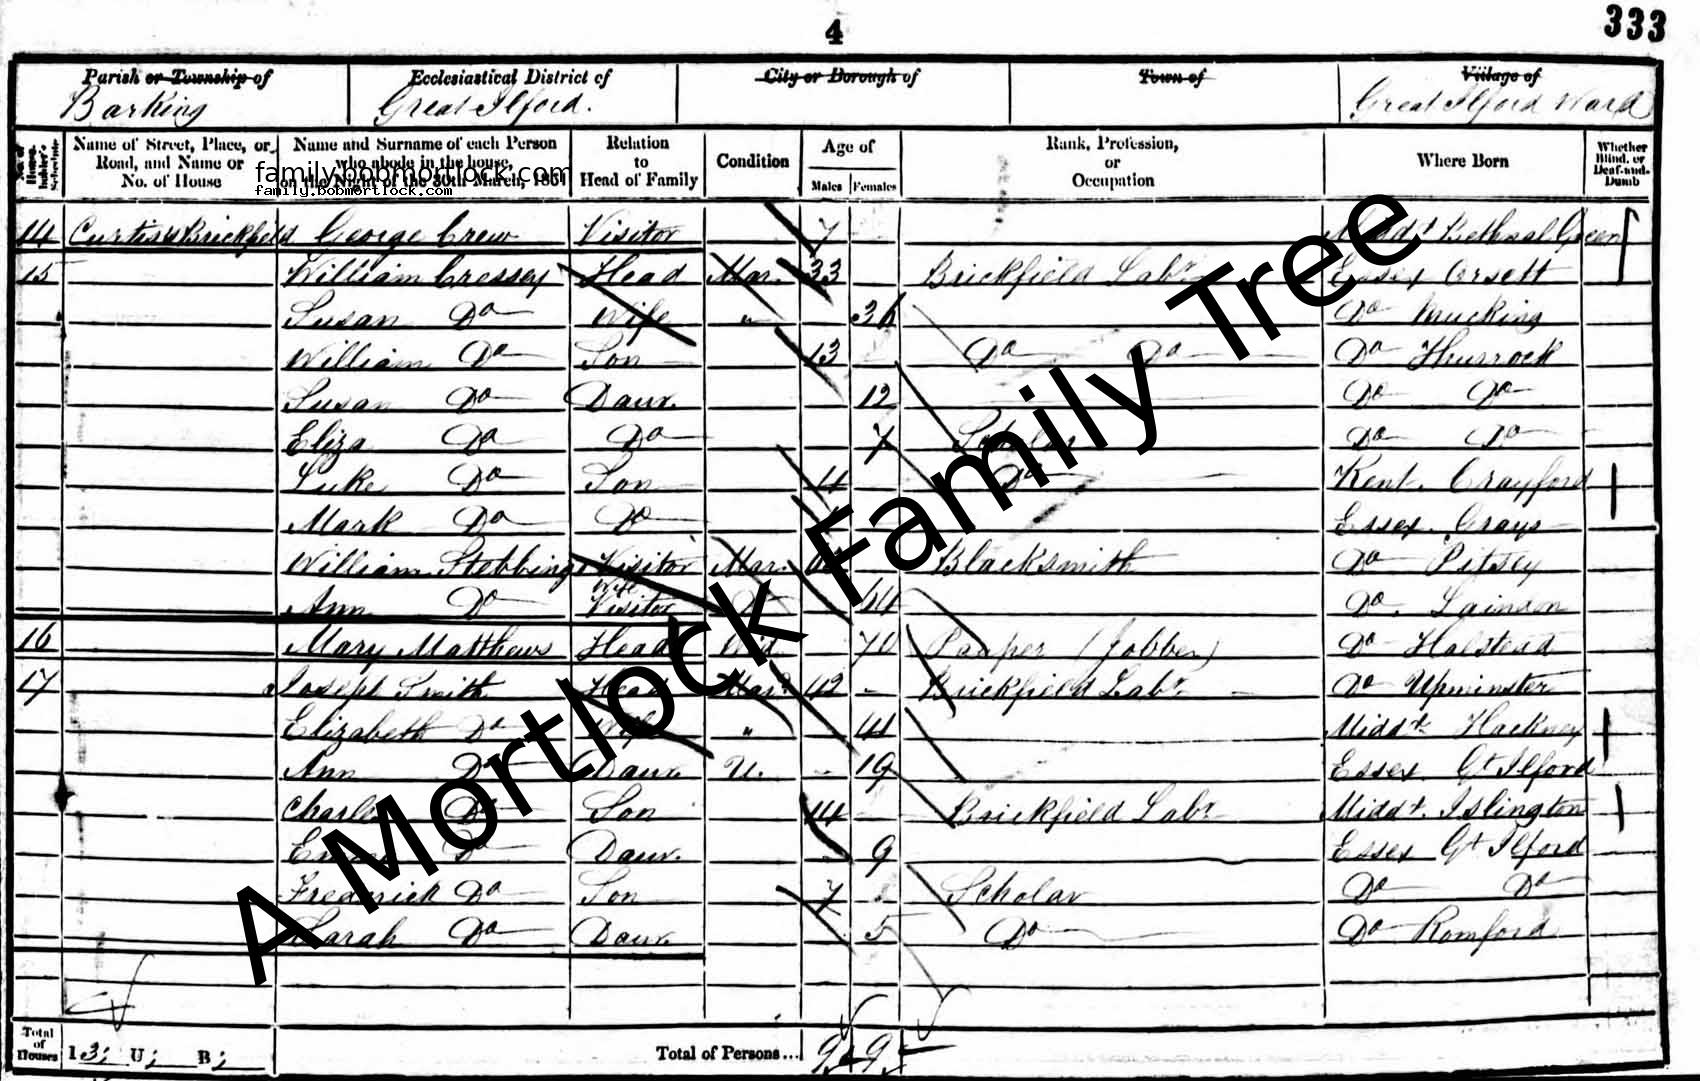 4
333
Parish or Township of
Ecclesiastical District of
City or Borough of
Town of
Village of
Barking
Great Ilford.
Great Ilford Ward
No. of House-holder's Schedule
Name of Street, Place, or Road, and Name or No. of House
Name and Surname of each Person who abode in the house, on the Night of the 30th March, 1851
Relation to Head of Family
Condition
Age of
Males
Females
Rank, Profession, or Occupation
Where Born
Whether Blind, or Deaf-and-Dumb
familybobmortlock.com
family.bobmortlock.com
14 Curtis's Brickfield George Crew Visitor 7 Middt Bethnal Green
15 William Cressey Head Mar. 33 Brickfield Labr Essex Orsett
Susan Do Wife " 36 Do Mucking
William Do Son 13 Do Do Do Thurrock
Susan Do Daur. 12 Do Do
Eliza Do Do 7 Scholar Do Do
Luke Do Son 4 Do Kent. Crayford
Mark Do Do Essex. Grays
William Stebbing Visitor Mar. Blacksmith Do Pitsey
Ann Do Wife Visitor Do 44 Do. Laindon
16 Mary Matthews Head Wid 70 Pauper (Jobber) Do Halstead
17 Joseph Smith Head Mar. 42 Brickfield Labr. Do Upminster
Elizabeth Do Wife " 41 Middt. Hackney
Ann Do Daur. U. 19 Essex Gt Ilford
Charles Do Son 14 Brickfield Labr Middt. Islington
Do Daur. 9 Essex Gt Ilford
Frederick Do Son 7 Scholar Do Do
Sarah Do Daur. 5 Do Do Romford
Total of Houses
I 3; U; B;
Total of Persons...
9 9
A Mortlock Family Tree